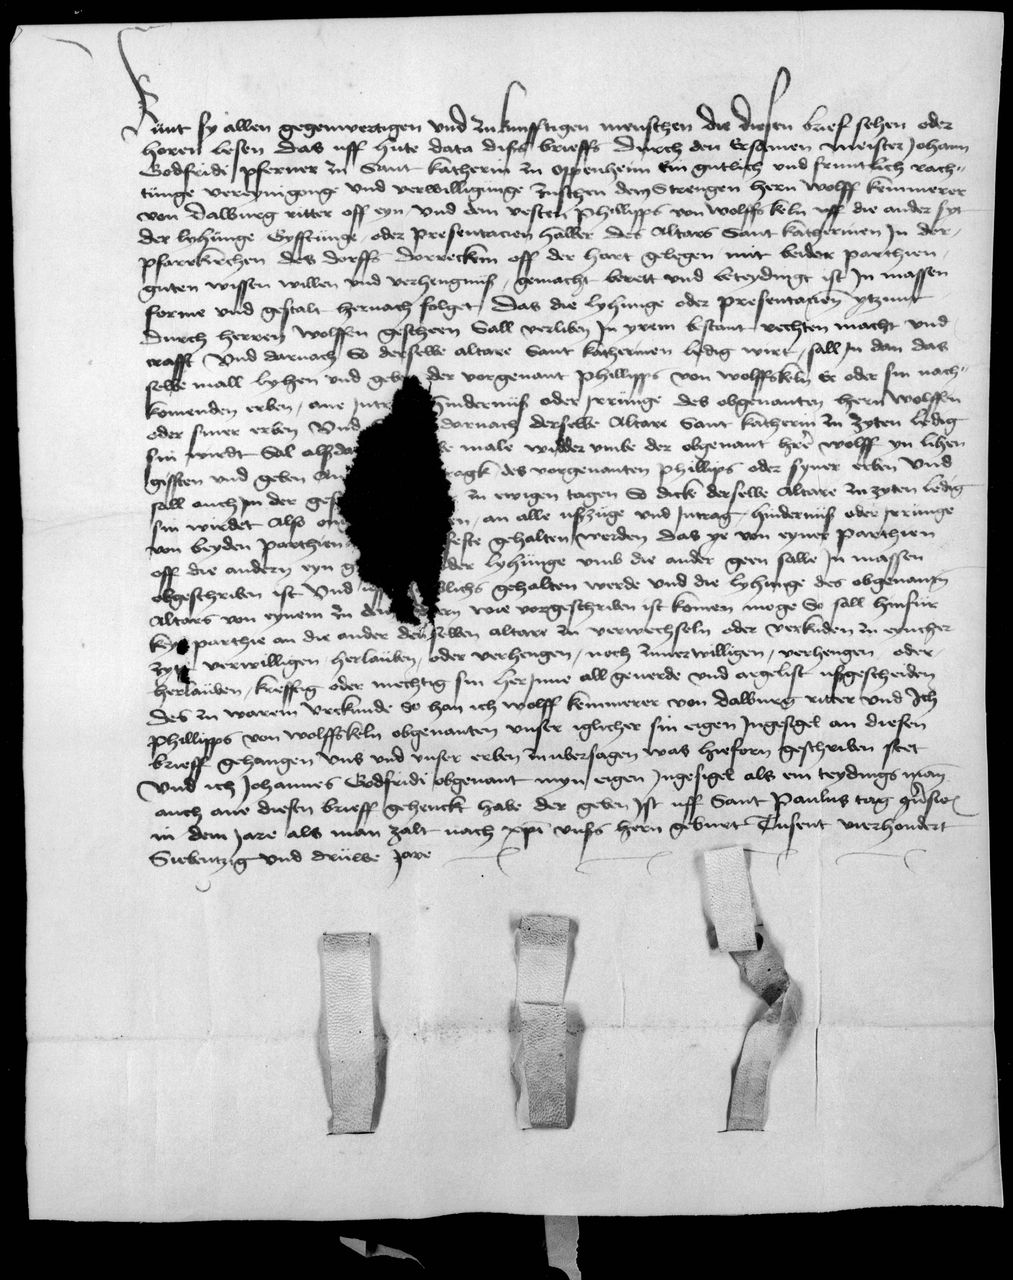 Kunt sy allen gegenwertigen und zukunfftigen menschen die diesen brief sehen oder
horen lesen das uff hute data diß brieffs durch den Ersamen meister Johann
Godfride pferner zu Sant katherin zu oppenheim Ein gutlich und fruntlich rach-
tunge vereynigong und verwilligunge zuschen dem Strengen hern wolff kemmerer
von dalburg ritter off eyn und dem vesten phillipps von wolffskeln uff die ander syt
der lyhunge Gyfftunge oder presentacien halber des altars Sant katherinen In der
pfarrkirchen des dorffs dorreckin off der hart gelegen mit beider parthien
guten wissen willen und verhengniß gemacht berett und beteydingt ist In massen
forme und gestalt hernach folget Das die lyhunge oder presentacien ytzunt
durch herren wolffen gescheen Sall verliben In yrem bestant rechten macht und
crafft Und darnach So derselbe altare Sant katherinen ledig wirt sall In dan das
selbe mall lyhen und geben der vorgenant phillipps von wolffskeln Er oder sin nach-
komenden erben ane Intra hinderniß oder Irrunge des obgenanten hern wolffen
oder siner erben Und darnach derselbe Altare Sant katherin zu zyten ledig
sin wirdt Sol alßda male widder umbe der obgenant here wolff yn lihen
gifften und geben on tragk des vorgenanten phillips oder syner erben Und
sall auch In der ges zu ewigen tagen So dick derselbe Altare zu zyten ledig
sin wirdet Also on en an alle ußzuge und Intrag hinderniß oder Irrunge
von beyden parthien feste gehalten werden das ye von eyner parthien
off die andern eyn g der lyhunge umb die ander geen salle In massen
obgeschriben ist Und lichs gehalten werde und die lyhunge des obgenanten
Altars von eynem zu dem andern wie vorgeschriben ist komen moge So sall hinfur
keyn parthie an die ander denselben altare zu verwechseln oder verkiden zu eyncher
zyt verwilligen herlauben oder verhengen noch zuuerwilligen verhengen oder
herlauben krefftig oder mechtig sin herInne all geuerde und argelist ußgescheiden
Des zu warem urkunde So han ich wolff kemmerer von dalburg ritter und Ich
phillipps von wolffskeln obgenanten unser iglicher sin eigen Ingesigel an diesen
brieff gehangen Uns und unser erben zu ubersagen was hieforn geschriben stet
Und ich Johannes Godfridi obgenant myn eigen Ingesigel als ein teydingsman
auch ane diesen brieff gehenckt habe der geben Ist uff Sant paulus tag
in dem Jare als man zalt nach xpi unsß hern geburt Tusent vierhondert
Siebentzig und druwe Jare